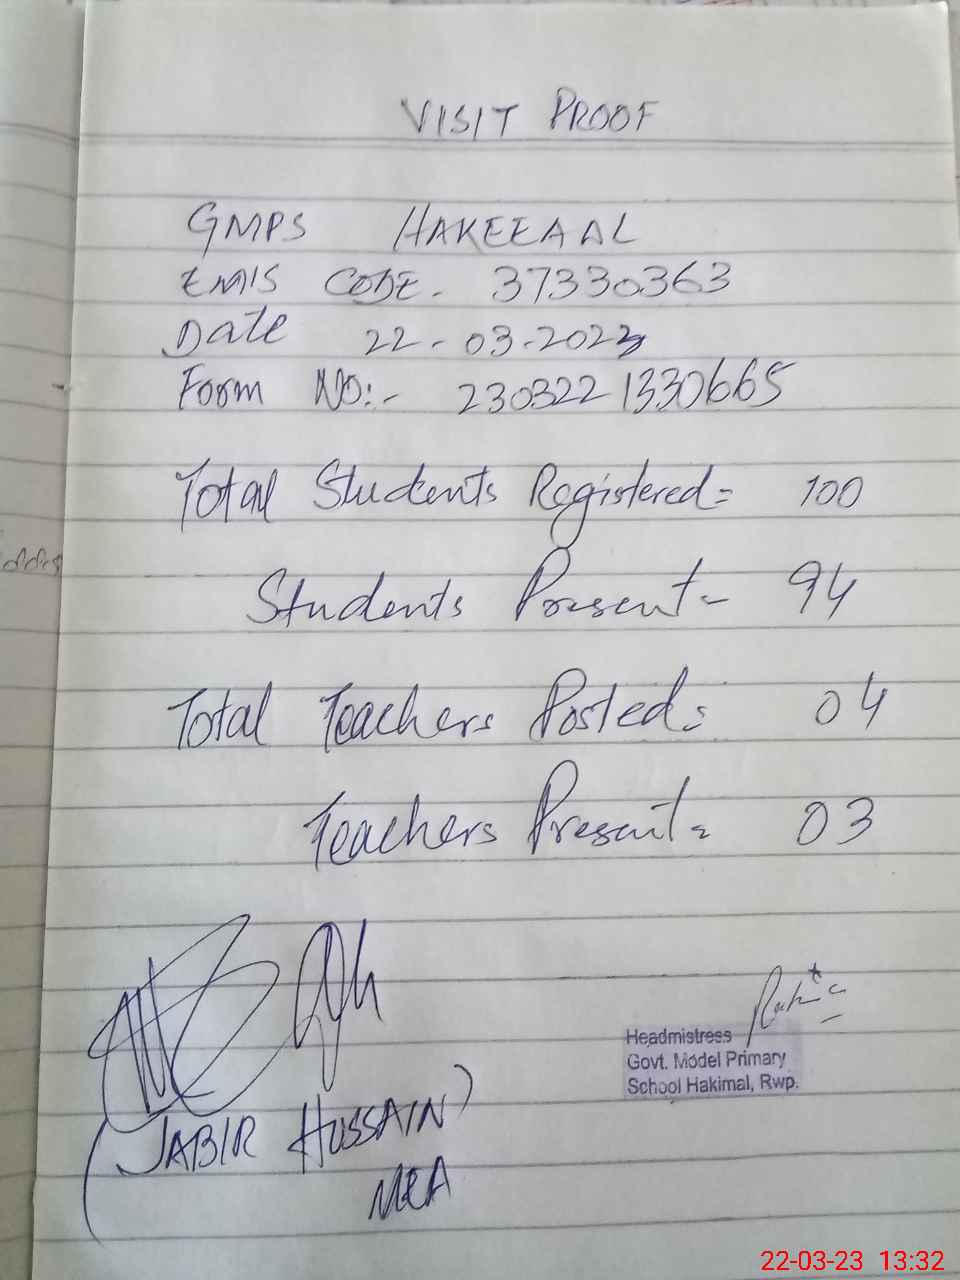 VISIT PROOF
GMPS HAKEEAAL
EMIS CODE. 37330363
Date 22-03-2023
Form NO:- 2303221330665
Total Students Registered= 100
Students Present= 94
Total Teachers Posted= 04
Teachers Present= 03
Headmistress
Govt. Model Primary
School Hakimal, Rwp.
(JABIR HUSSAIN)
MEA
22-03-23 13:32